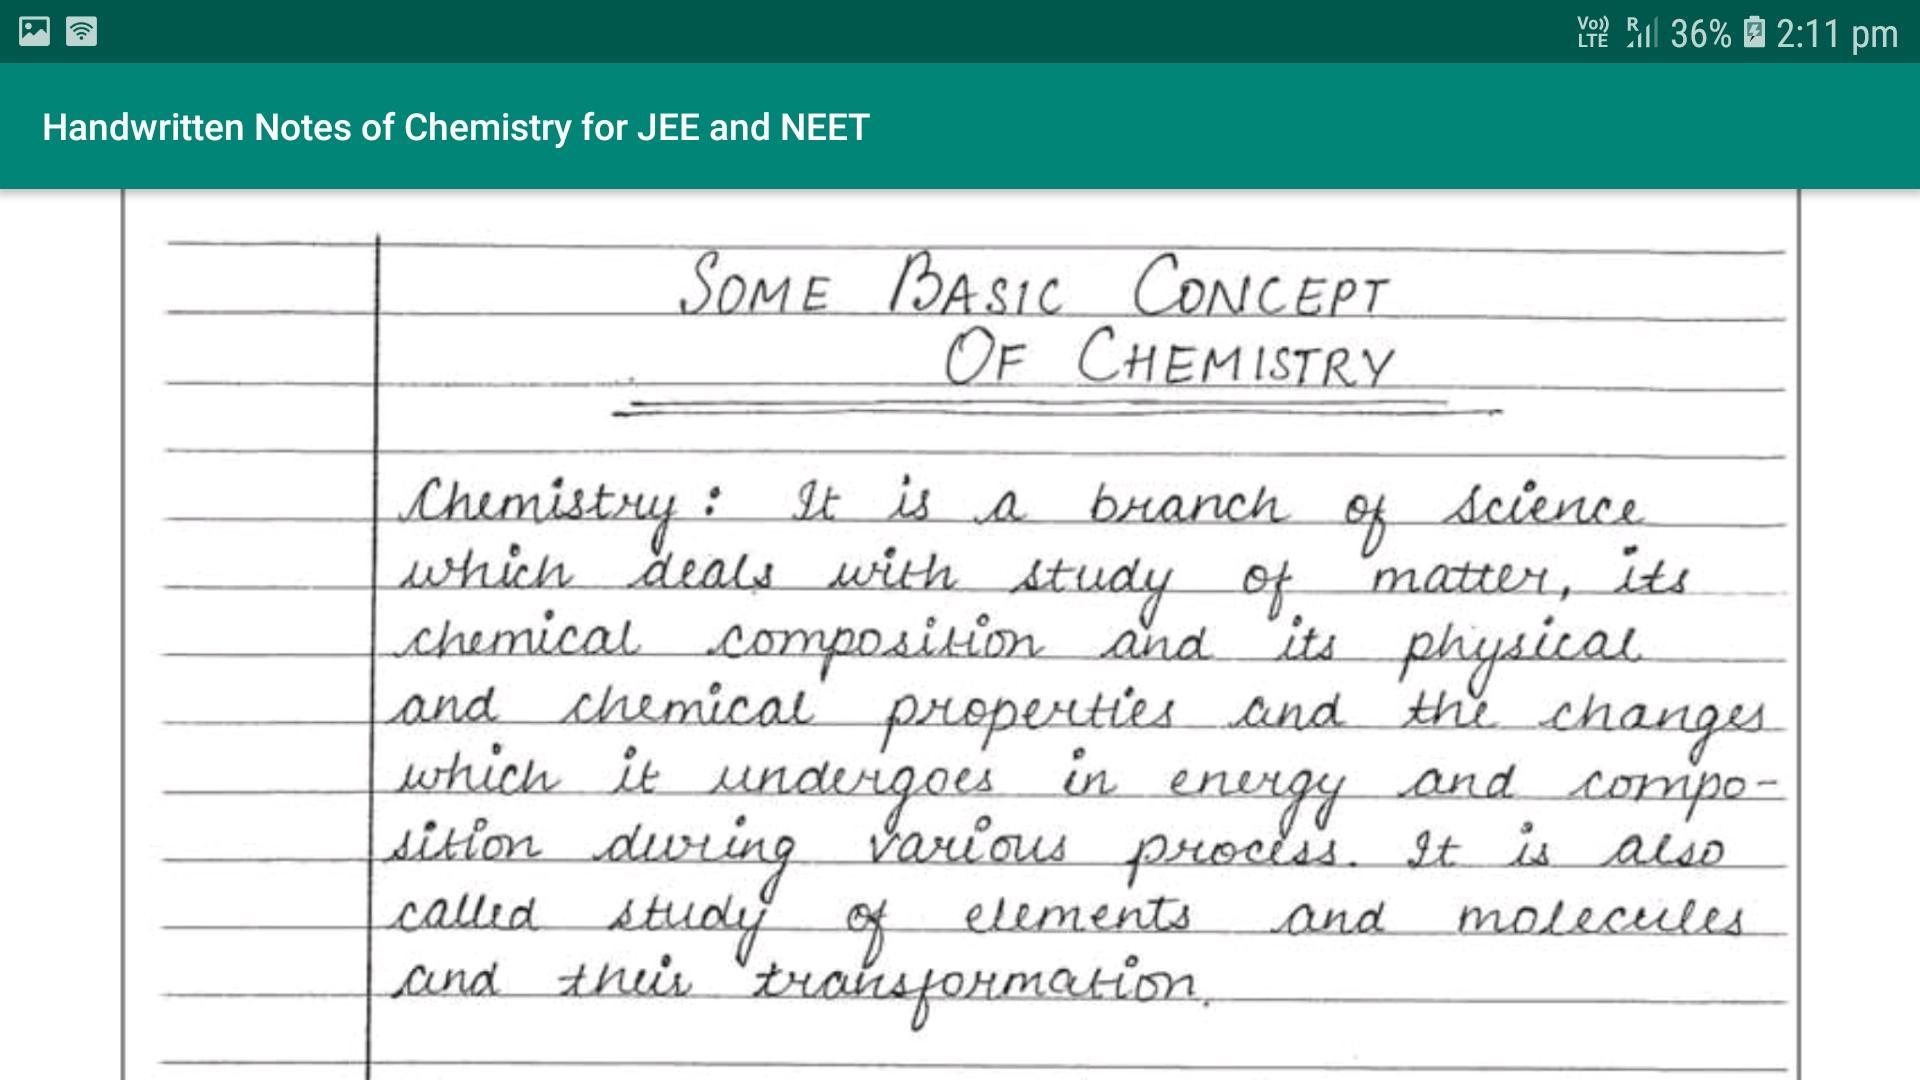 Vo)) LTE R 36% 2:11 pm
Handwritten Notes of Chemistry for JEE and NEET
SOME BASIC CONCEPT
OF CHEMISTRY
Chemistry: It is a branch of science
which deals with study of matter, its
chemical composition and its physical
and chemical properties and the changes
which it undergoes in energy and compo-
sition during various process. It is also
called study of elements and molecules
and their transformation.